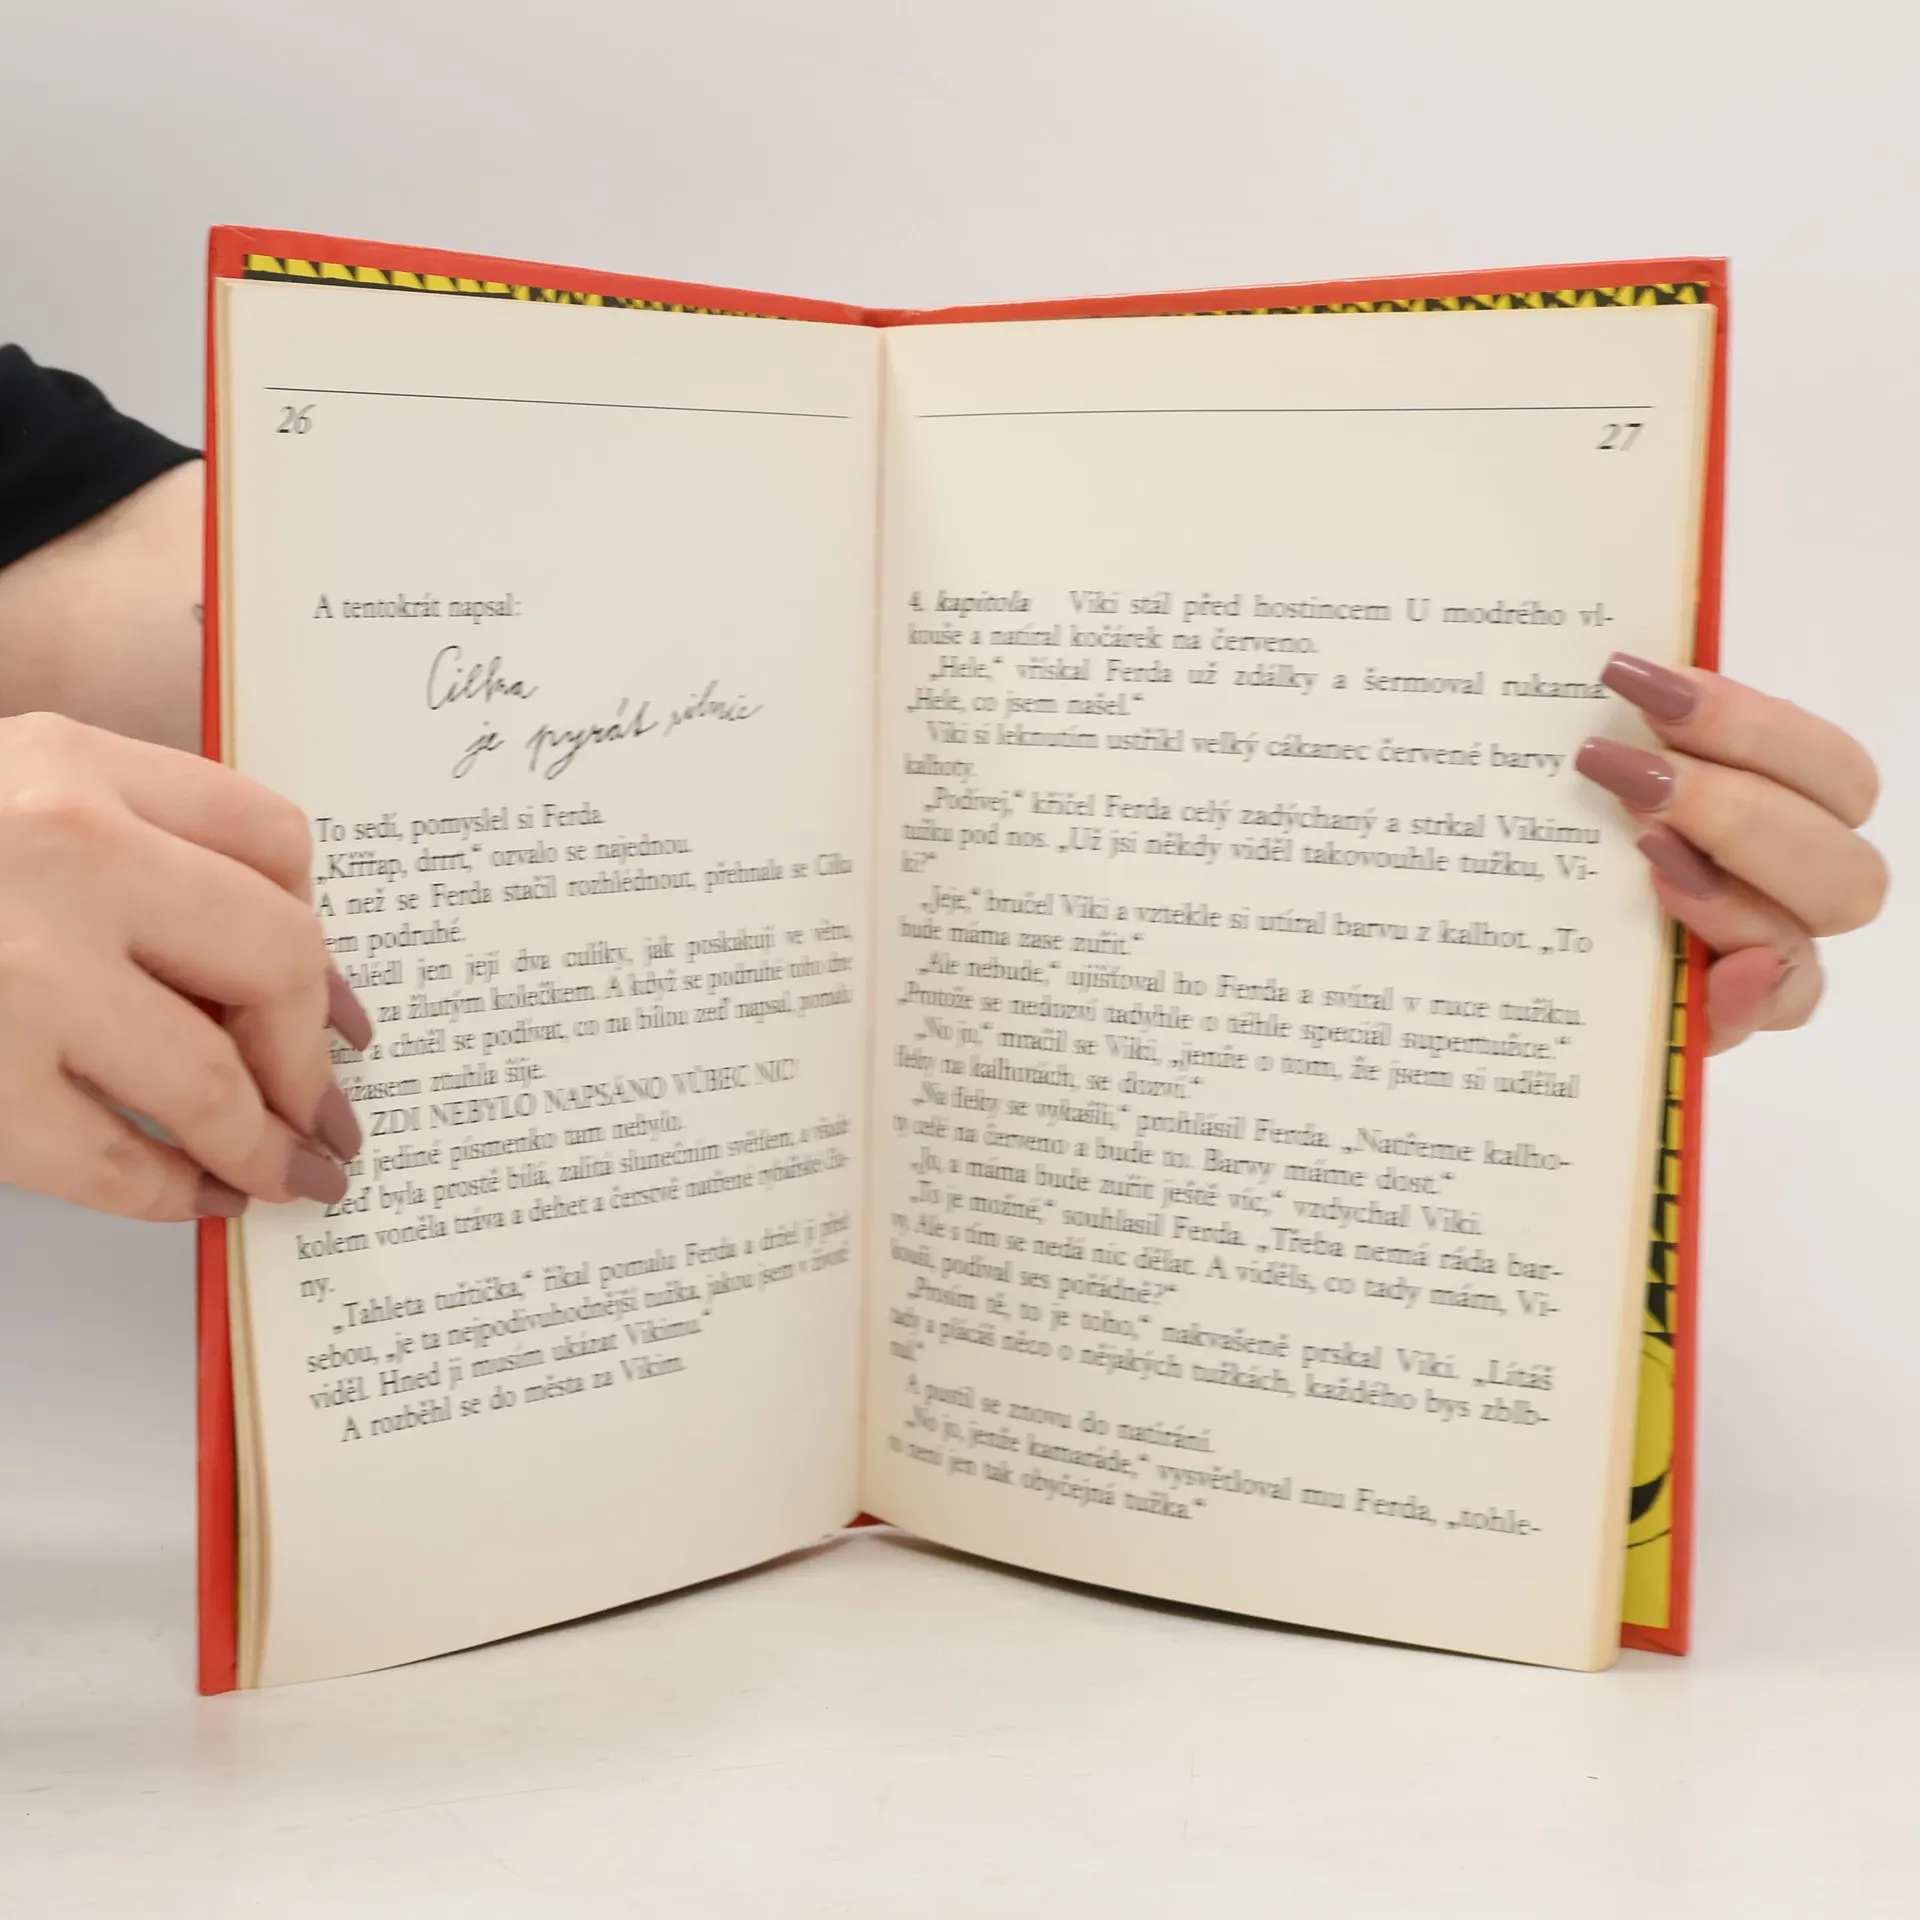 26
A tentokrát napsal:
Cilka
je pyrát silnic
To sedí, pomyslel si Ferda.
„Křřřap, drrrt,“ ozvalo se najednou.
A než se Ferda stačil rozhlédnout, přehnala se Cilka
em podruhé.
hlédl jen její dva culíky, jak poskakují ve větru,
za žlutým kolečkem. A když se podruhé toho dne
a chtěl se podívat, co na bílou zeď napsal, pomalu
úžasem ztuhla šíje.
ZDI NEBYLO NAPSÁNO VŮBEC NIC!
ni jediné písmenko tam nebylo.
Zeď byla prostě bílá, zalitá slunečním světlem, a všude
kolem voněla tráva a dehet a čerstvě natřené rybářské člu-
ny.
„Tahleta tužtička,“ říkal pomalu Ferda a držel ji před
sebou, „je ta nejpodivuhodnější tužka, jakou jsem v životě
viděl. Hned ji musím ukázat Vikimu.“
A rozběhl se do města za Vikim.
27
4. kapitola Viki stál před hostincem U modrého vl-
kouše a natíral kočárek na červeno.
„Hele,“ vřískal Ferda už zdálky a šermoval rukama.
„Hele, co jsem našel.“
Viki si leknutím ustřikl velký cákanec červené barvy
kalhoty.
„Podívej,“ křičel Ferda celý zadýchaný a strkal Vikimu
tužku pod nos. „Už jsi někdy viděl takovouhle tužku, Vi-
ki?“
„Jeje,“ bručel Viki a vztekle si utíral barvu z kalhot. „To
bude máma zase zuřit.“
„Ale nebude,“ ujišťoval ho Ferda a svíral v ruce tužku.
„Protože se nedozví tadyhle o téhle speciál supertužce.“
„No jo,“ mračil se Viki, „jenže o tom, že jsem si udělal
fleky na kalhotách, se dozví.“
„Na fleky se vykašli,“ prohlásil Ferda. „Natřeme kalho-
ty celé na červeno a bude to. Barvy máme dost.“
„Jo, a máma bude zuřit ještě víc,“ vzdychal Viki.
„To je možné,“ souhlasil Ferda. „Třeba nemá ráda bar-
vy. Ale s tím se nedá nic dělat. A viděls, co tady mám, Vi-
kouši, podíval ses pořádně?“
„Prosím tě, to je toho,“ nakvašeně prskal Viki. „Lítáš
tady a plácáš něco o nějakých tužkách, každého bys zblb-
nul.“
A pustil se znovu do natírání.
„No jo, jenže kamaráde,“ vysvětloval mu Ferda, „tohle-
to není jen tak obyčejná tužka.“